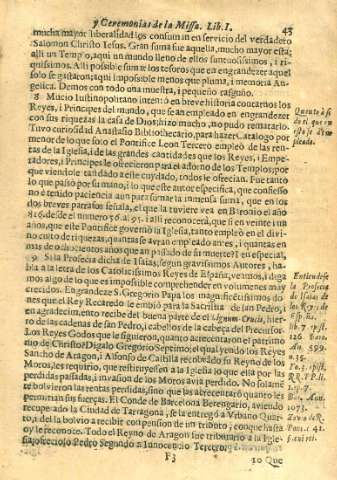 y Ceremonias de la Missa. Lib. I. 43
mucha mayor liberalidad los consumin en servicio del verdadero
Salomon Christo Iesus. Gran suma fue aquella, mucho mayor esta;
alli un Templo, aqui en mundo lleno de ellos suntuosissimos, i ri
quissimos. Alli possible sumar los tesoros que en engrandezer aquel
solo se gastaron; aqui impossible menos que pluma, i memoria An-
gelica. Demos con todo una muestra, i pequeño rasguño.
8 Mucio Iustinopolitano intentò en breve historia contarnos los
Reyes, i Principes del mundo, que se an empleado en engrandezer
con sus riquezas la casa de Dios; hizo mucho, no pudo rematarlo.
Tuvo curiosidad Anastasio Bibliothecario, para hazer Catalogo por
menor de lo que solo el Pontifice Leon Tercero empleò de las ren-
tas de la Iglesia, i de las grandes cantidades que los Reyes, i Empe-
radores, i Principes le ofrecieron para el adorno de los Templos; por
que viendole tan dado a este cuydado, todos le ofrecian. Fue tanto
lo que passò por su mano, i lo que este autor especifica, que confiesso
no è tenido paciencia aun para sumar la inmensa suma, que en los
dos breves parrafos señala, el que la tuviere vea en Baronio el año
816. desde el numero 76. a 95. i alli reconocerà, que si en veinte i un
años, que este Pontifice governò la Iglesia, tanto empleò en el divi
no culto de riquezas, quantas se avran empleado antes, i quantas en
mas de docientos años que an passado de su muerte? I en especial,
9 Si la Profecia dicha de Isaias, segun gravissimos Autores, ha-
bla a la letra de los Catolicissimos Reyes de España, veamos, i diga
mos algo de lo que es impossible comprehender en volumenes muy
crecidos. En grandeze S. Gregorio Papa los magnificentissimos do
nes que el Rey Recaredo le embiò para la Sacristia de san Pedro, i
en agradecimiento recibe del buena parte de el Lignum Crucis, hierro
de las cadenas de san Pedro, i cabellos de la cabeça del Precursor.
Los Reyes Godos que le siguieron, quanto acrecentaron el patrimo
nio de Christo? Digalo Gregorio Septimo; el qual yendo los Reyes
Sancho de Aragon, i Alfonso de Castilla recibiendo su Reyno de los
Moros, les requirio, que restituyessen a la Iglesia lo que ella por las
perdida passada, i invasion de los Moros avia perdido. No solamẽ
te bolvieron las rentas perdidas, sino que las acrecentarõ quanto les
permitian sus fuerças. El Conde de Barcelona Berengario, aviendo
recuperado la Ciudad de Tarragona, se la entregò a Urbano Quar-
to, i del la bolvio a recibir con pension de un tributo, como que hasta
oy le reconoce. Todo el Reyno de Aragon fue tributario a la Igle-
sia, ofreciolo Pedro Segundo a Innocencio Tercero.
F3 10 Que
Quanto à si
do el que en
esto se à em
pleado.
Entiendese
la Profecia
de Isaias de
los Reyes de
Esp.
lib. 7. epist.
126. Baro.
Ano. 599.
n. 25.
Bar. Ano.
1073.
Zurita R.
Part. 1. 41.